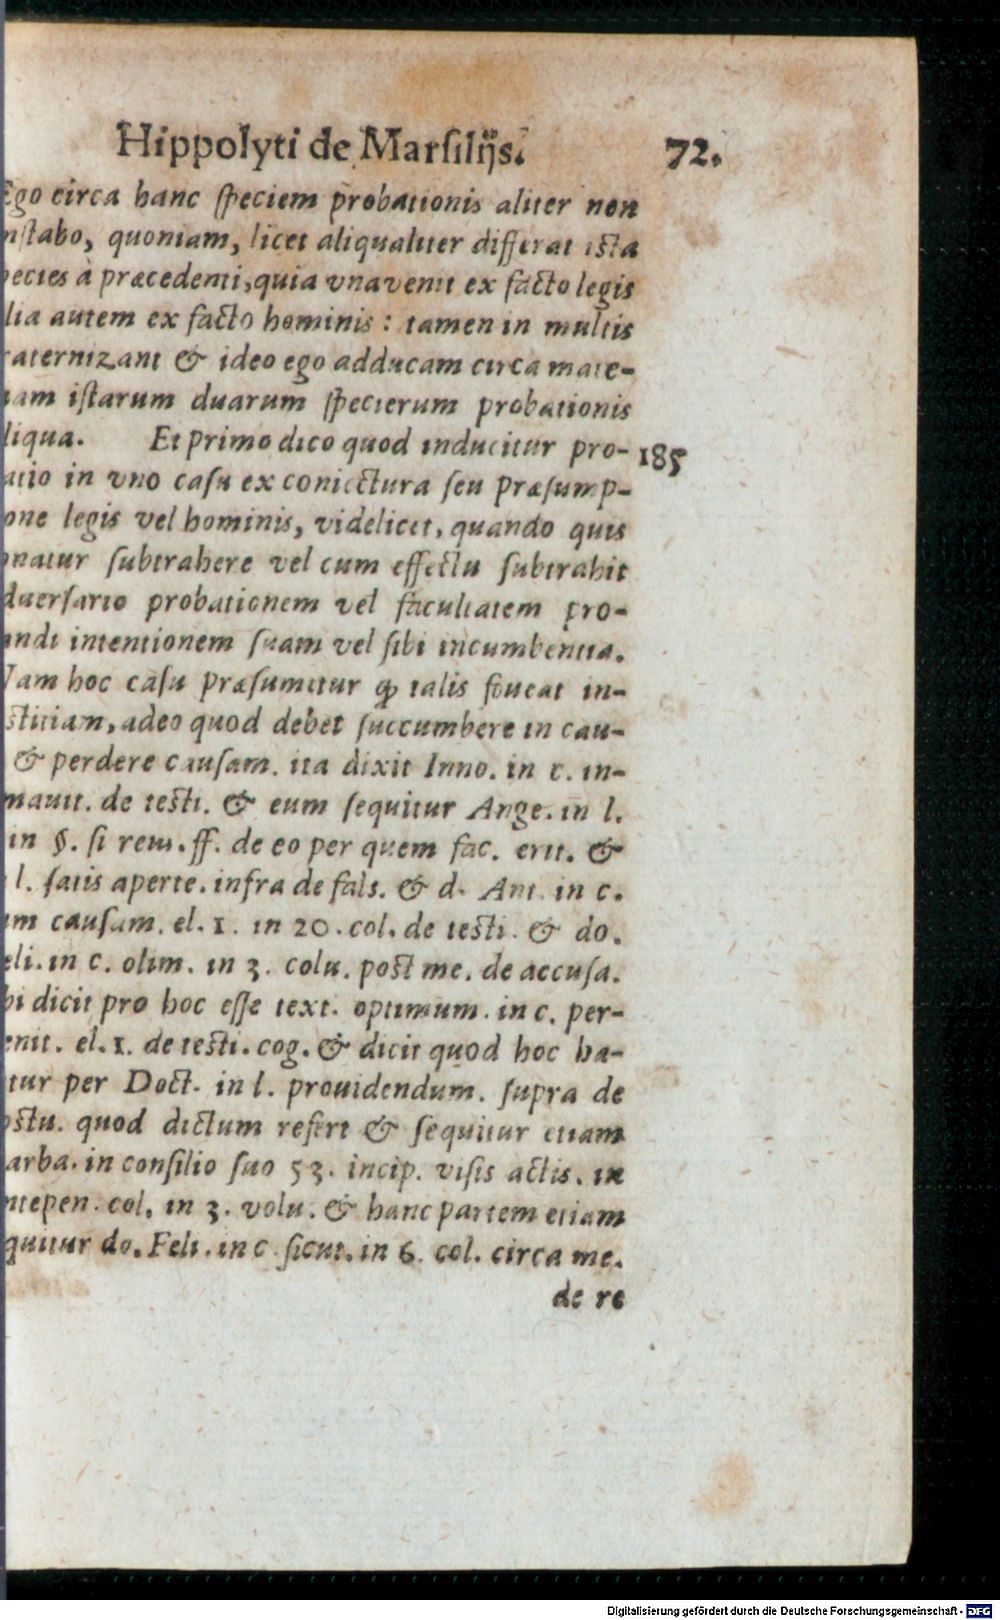 Hippolyti de Marsilijs. 72.
Ego circa hanc speciem probationis aliter non
nstabo, quoniam, licet aliqualiter differat ista
pecies à præcedenti, quia vna venit ex facto legis
lia autem ex facto hominis: tamen in multis
raternizant & ideo ego adducam circa mate-
iam istarum duarum specierum probationis
liqua. Et primo dico quod inducitur pro- 185
atio in vno casu ex coniectura seu præsump-
one legis vel hominis, videlicet, quando quis
onatur subtrahere vel cum effectu subtrahit
duersario probationem vel facultatem pro-
andi intentionem suam vel sibi incumbentia.
Nam hoc casu præsumitur ꝙ talis foueat in-
stitiam, adeo quod debet succumbere in cau-
& perdere causam. ita dixit Inno. in c. in-
mauit. de testi. & eum sequitur Ange. in l.
in §. si rem. ff. de eo per quem fac. erit. &
l. satis aperte. infra de fals. & d. Ant. in c.
um causam. el. 1. in 20. col. de testi. & do.
eli. in c. olim. in 3. colu. post me. de accusa.
bi dicit pro hoc esse text. optimum. in c. per-
enit. el. 1. de testi. cog. & dicit quod hoc ha-
tur per Doct. in l. prouidendum. supra de
ostu. quod dictum refert & sequitur etiam
arba. in consilio suo 53. incip. visis actis. in
ntepen. col. in 3. volu. & hanc partem etiam
quitur do. Feli. in c. sicut. in 6. col. circa me.
de re
Digitalisierung gefördert durch die Deutsche Forschungsgemeinschaft - DFG